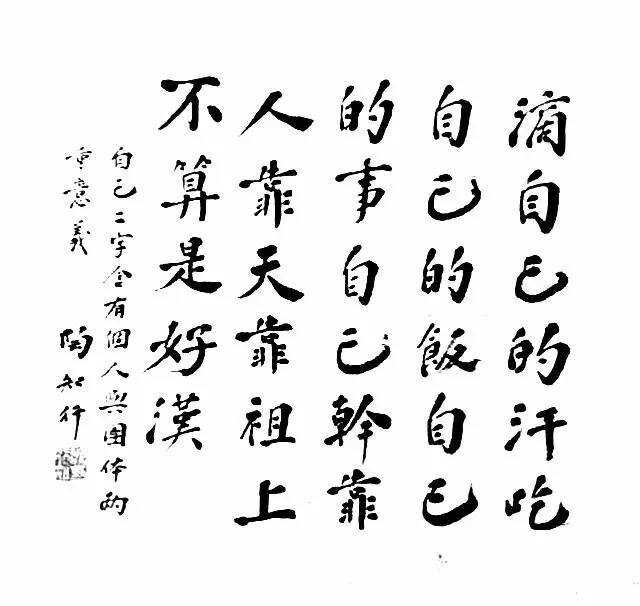 滴自己的汗吃
自己的飯自己
的事自己幹靠
人靠天靠祖上
不算是好漢
自己二字含有個人與團体兩
重意義
陶知行